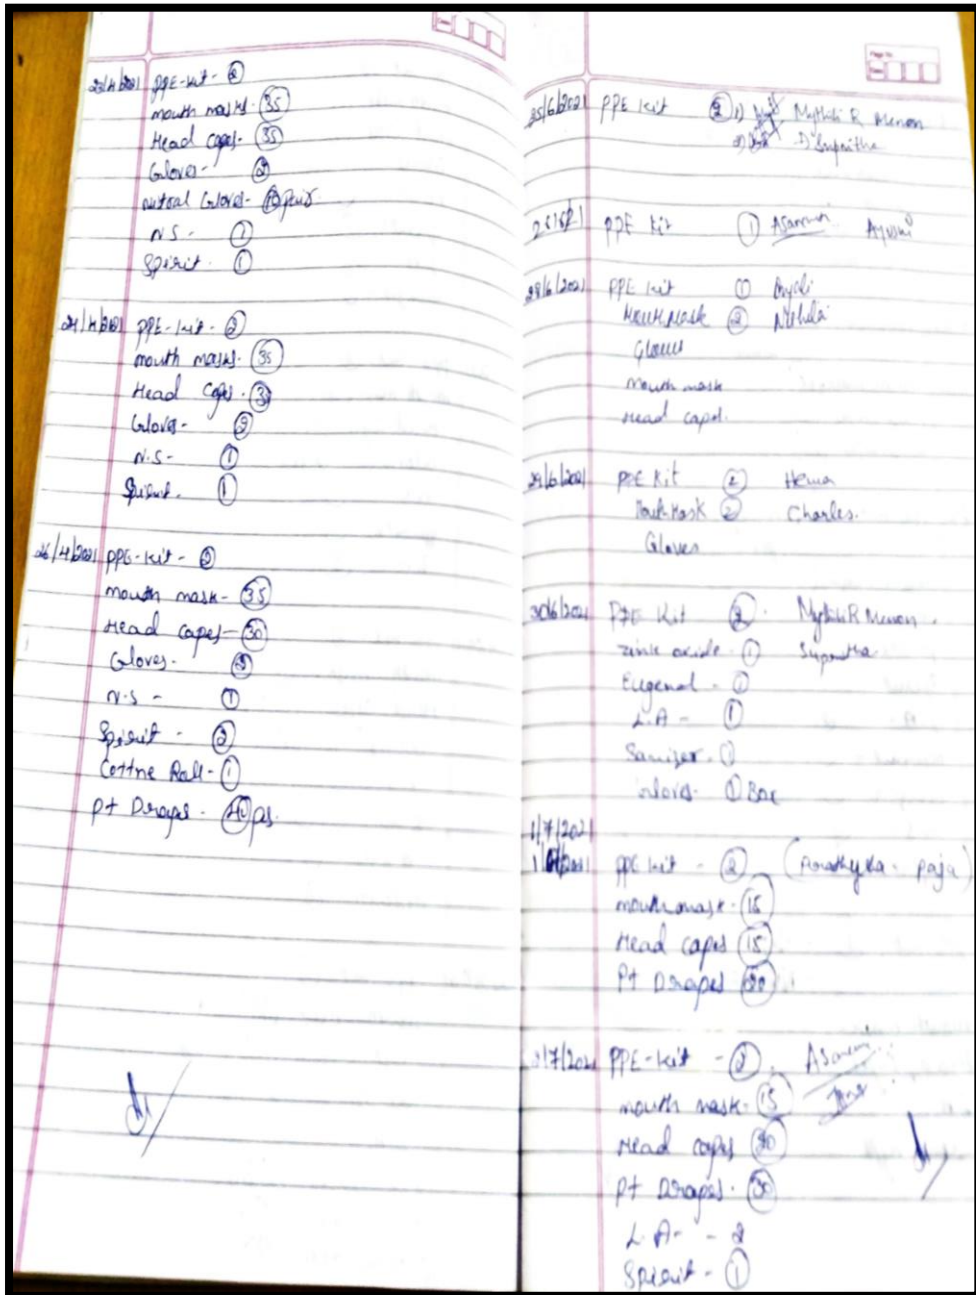 23/4/2021 PPE-kit - 2
mouth masks - 35
Head capes - 35
Gloves - 2
Gloves - pair
N.S - 1
Spirit - 1
24/4/2021 PPE-kit - 2
mouth masks - 35
Head capes -
Gloves - 2
N.S - 1
Spirit - 1
26/4/2021 PPE-kit - 2
mouth mask - 35
Head capes - 30
Gloves -
N.S - 1
Spirit - 2
Cottne Roll - 1
Pt Drapes - 40 ps.
Page No.
Date
25/6/2021 PPE Kit 2 1) Mythili R Menon
2) Supritha
PPE Kit 1
28/6/2021 PPE kit 1
Mouth Mask 2
Gloves
mouth mask
Head capes.
29/6/2021 PPE Kit 2 Hema
Mouth Mask 2 Charles.
Gloves
30/6/2021 PPE Kit 2. Mythili R Menon.
zink oxide - 1 Supritha
Eugenol - 1
L.A - 1
Sanizer - 1
Gloves - 1 Box
1/7/2021
PPE kit - 2
mouth mask - 15
Head capes 15
Pt Drapes
PPE-kit - 2
mouth mask - 15
Head capes
Pt Drapes - 30
L.A - - 2
Spirit - 1